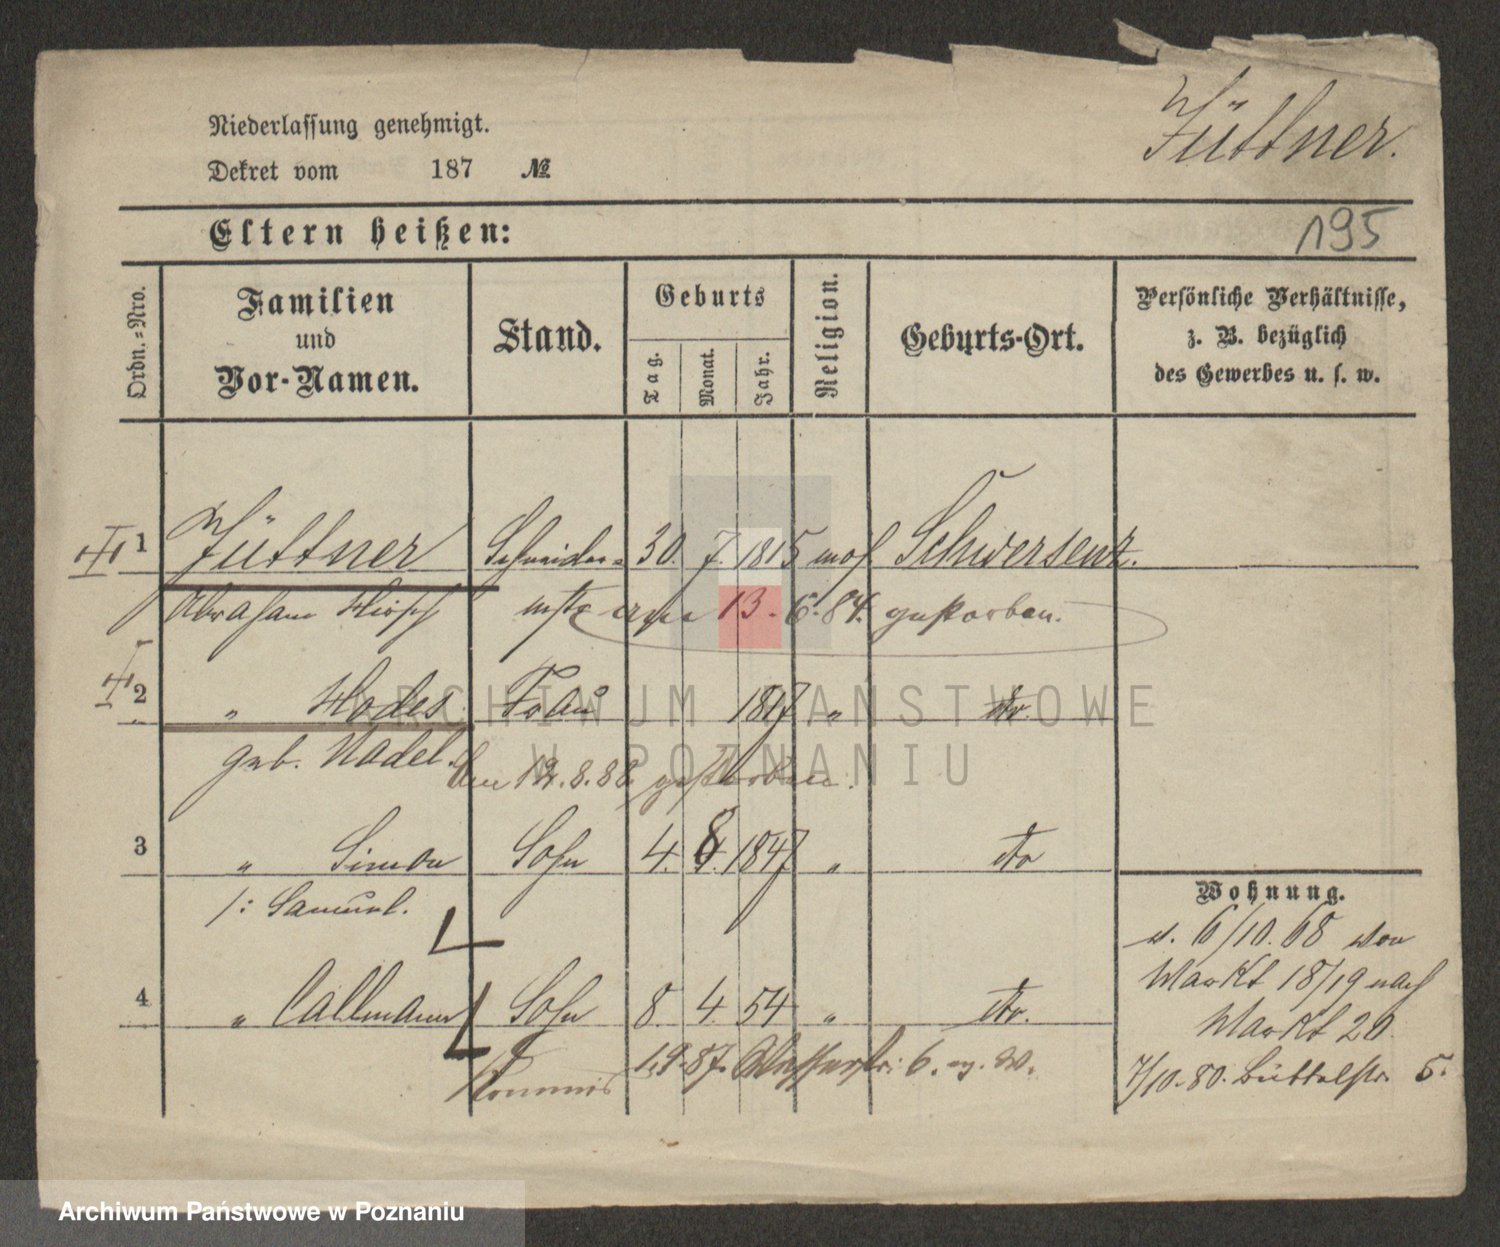 Niederlassung genehmigt.
Jüttner.
Dekret vom 187 №
Eltern heißen:
195
Ordn.=Nro.
Familien und Vor-Namen.
Stand.
Geburts
Tag. Monat. Jahr.
Religion.
Geburts-Ort.
Persönliche Verhältnisse,
z. B. bezüglich
des Gewerbes u. s. w.
1 Jüttner Schneider= 30. 7. 1815 mos Schwersenz.
Abraham Hirsch mstr 13. 6. 84. gestorben.
2 " Hodes Frau 1817 " do.
geb. Nadel. den 12. 8. 88. gestorben.
3 " Simon Sohn 4. 8 1847 " do
/: Samuel.
4 " Callmann Sohn 8 4. 54 " do.
Kommis 1.9.87. Wasserstr: 6.
Wohnung.
6/10. 68 von
Markt 18/19 nach
Markt 20.
7/10.80. Büttelstr. 5.
ARCHIWUM PAŃSTWOWE
W POZNANIU
Archiwum Państwowe w Poznaniu